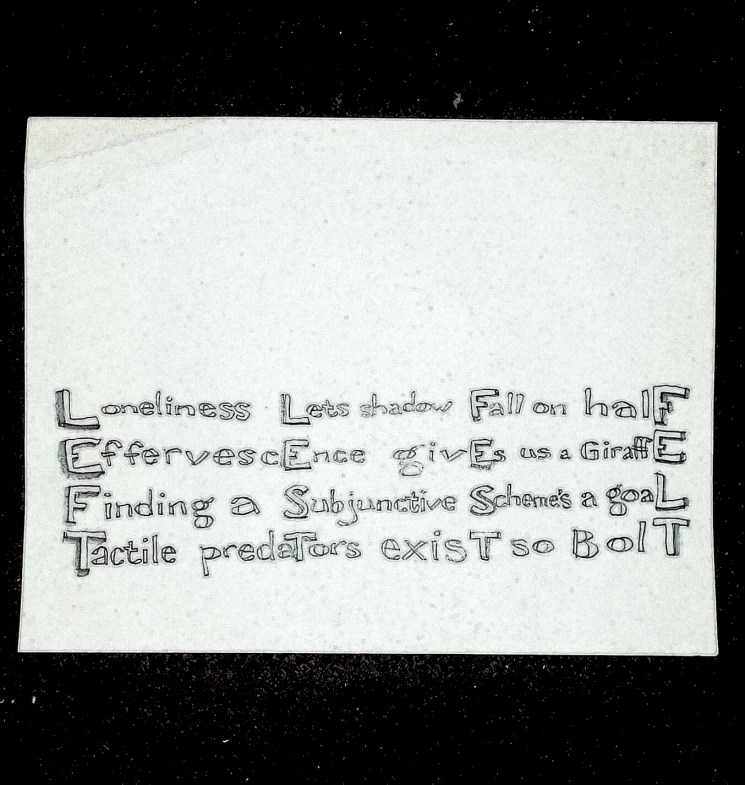 Loneliness Lets shadow Fall on halF
EffervescEnce givEs us a GiraffE
Finding a Subjunctive Scheme's a goaL
Tactile predaTors exisT so BolT